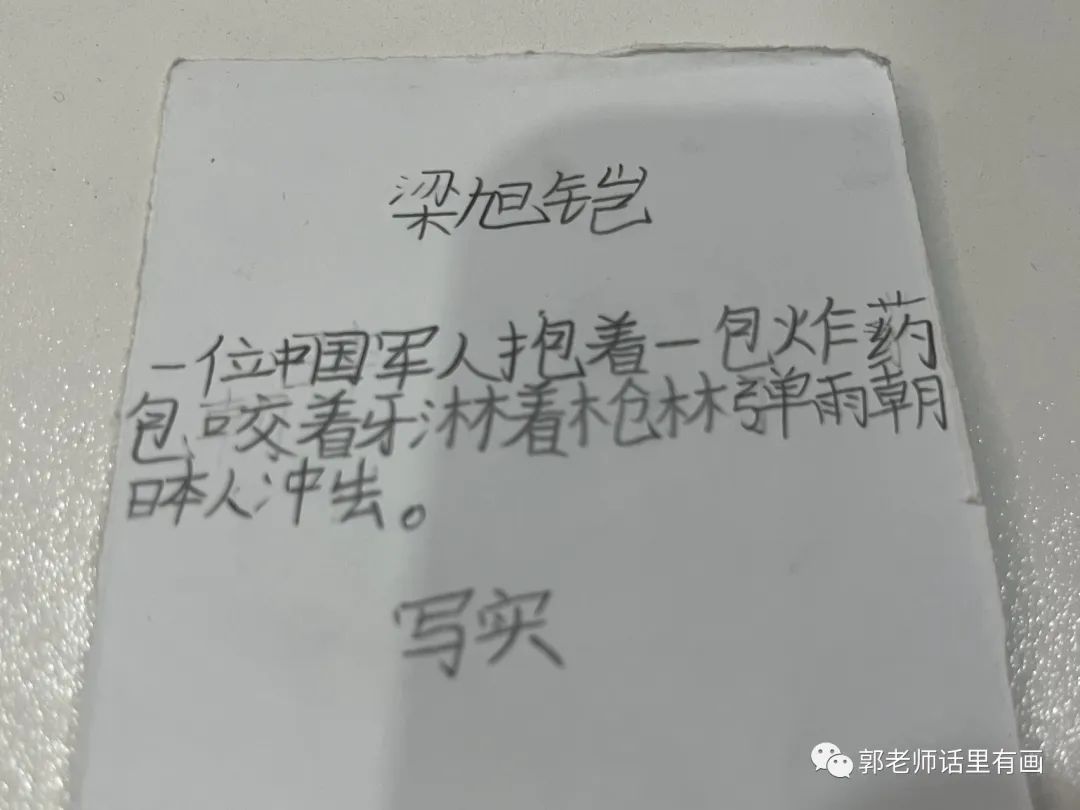 梁旭铠
一位中国军人抱着一包炸药
包咬着牙淋着枪林弹雨朝
日本人冲出。
写实
郭老师话里有画